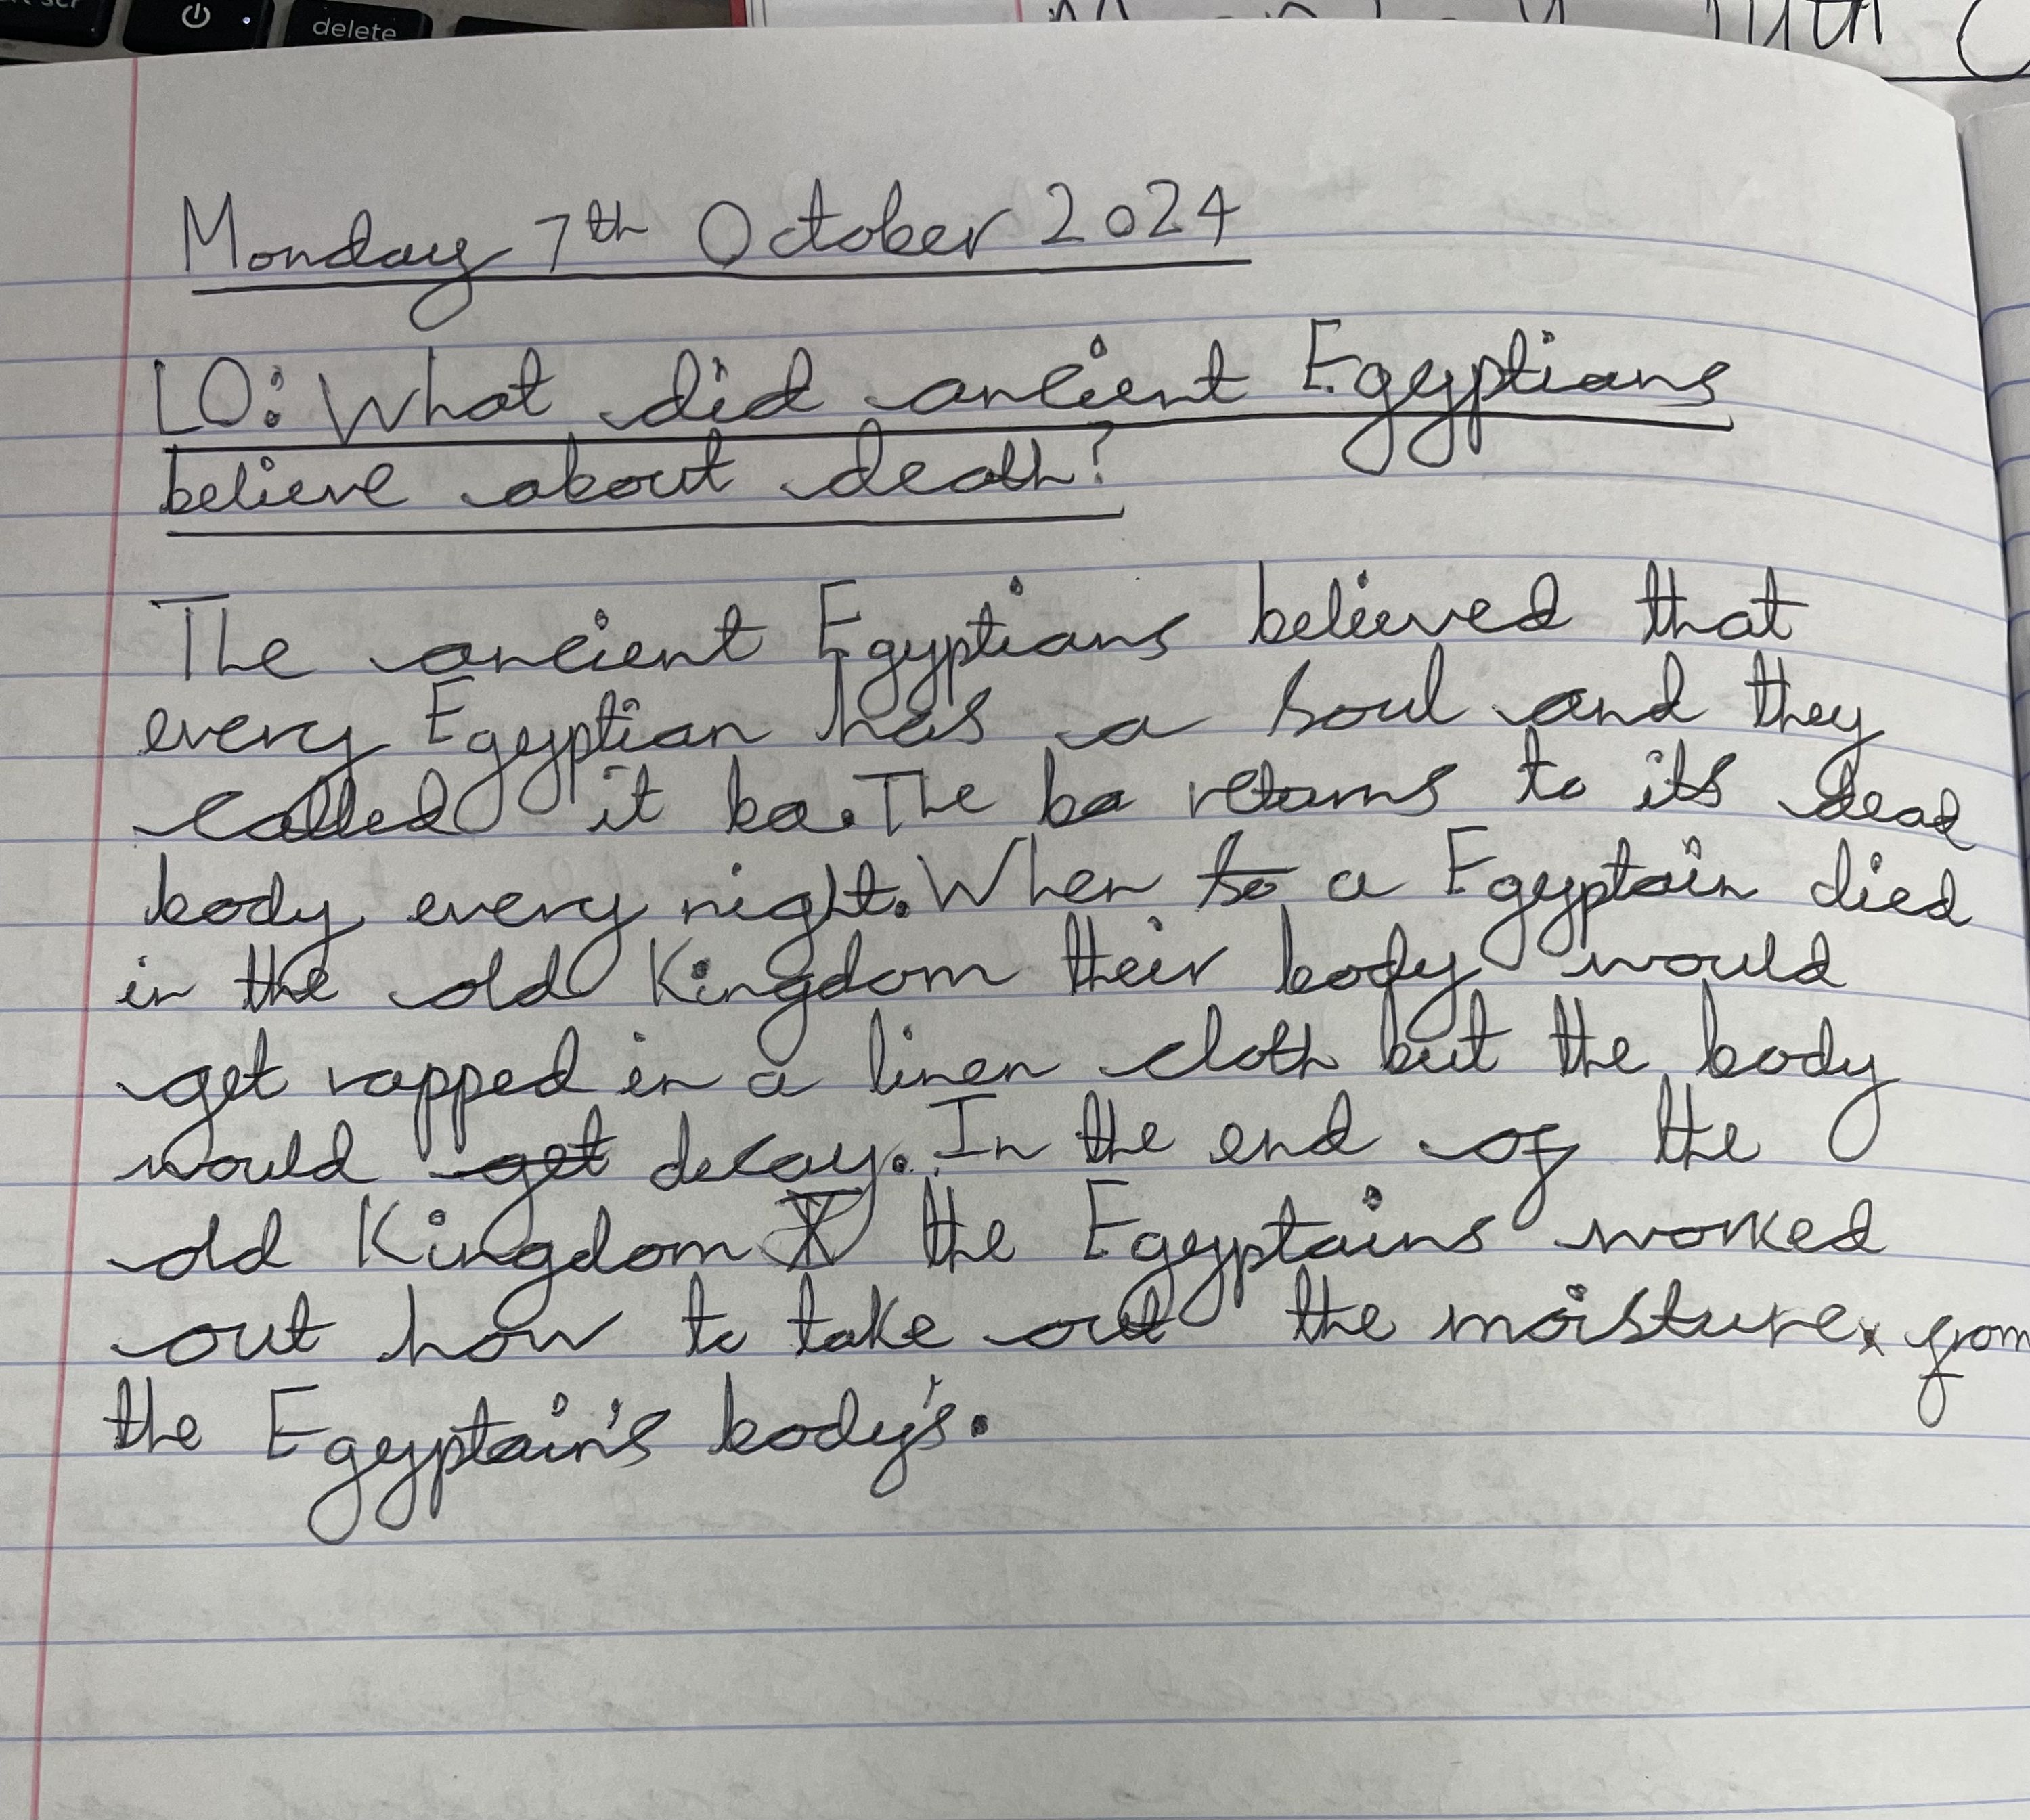 delete
Monday 7th October 2024
LO: What did ancient Egyptians
believe about death?
The ancient Egyptians believed that
every Egyptian has a soul and they
called it ba. The ba returns to its dead
body every night. When to a Egyptain died
in the old Kingdom their body would
get rapped in a linen cloth but the body
would get decay. In the end of the
old Kingdom the Egyptains worked
out how to take out the moisture from
the Egyptain's body's.